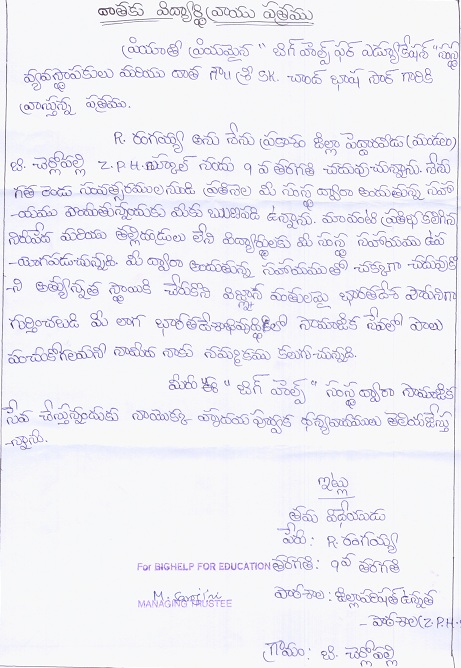 దాతకు విద్యార్థి వ్రాయు పత్రము
ప్రియాతి ప్రియమైన "బిగ్ హెల్ప్ ఫర్ ఎడ్యుకేషన్" సంస్థ
వ్యవస్థాపకులు మరియు దాత గౌ॥ శ్రీ SK. చాంద్ భాషా సార్ గారికి
వ్రాస్తున్న పత్రము.
R. రంగయ్య అను నేను ప్రకాశం జిల్లా పెద్దారవీడు (మండలం)
బి. చెర్లోపల్లి Z.P.H.స్కూల్ నందు 9 వ తరగతి చదువుచున్నాను. నేను
గత రెండు సంవత్సరములనుండి ప్రతినెల మీ సంస్థ ద్వారా అందుతున్న సహా
-యము పొందుతున్నందుకు మీకు ఋణపడి ఉన్నాను. మా వంటి ప్రతిభ కలిగిన
నిరుపేద మరియు తల్లిదండ్రులు లేని విద్యార్థులకు మీ సంస్థ సహాయము ఉప
-యోగపడుచున్నది. మీ ద్వారా అందుతున్న సహాయముతో చక్కగా చదువుకొ
-ని అత్యున్నత స్థాయికి చేరుకొని విజ్ఞాన వంతులమై భారతదేశ పౌరునిగా
గుర్తించబడి మీ లాగ సామాజిక సేవలో పాలు
పంచుకోగలమని నామీద నాకు నమ్మకము కలుగుచున్నది.
మీరు ఈ "బిగ్ హెల్ప్" సంస్థ ద్వారా సామాజిక
సేవ చేస్తున్నందుకు నాయొక్క హృదయ పూర్వక ధన్యవాదములు తెలియజేస్తు
-న్నాను.
ఇట్లు
తమ విధేయుడు
పేరు: R. రంగయ్య
For BIGHELP FOR EDUCATION తరగతి: 9 వ తరగతి
MANAGING TRUSTEE పాఠశాల: జిల్లాపరిషత్ ఉన్నత
- పాఠశాల (Z.P.H.
గ్రామం: బి. చెర్లోపల్లి